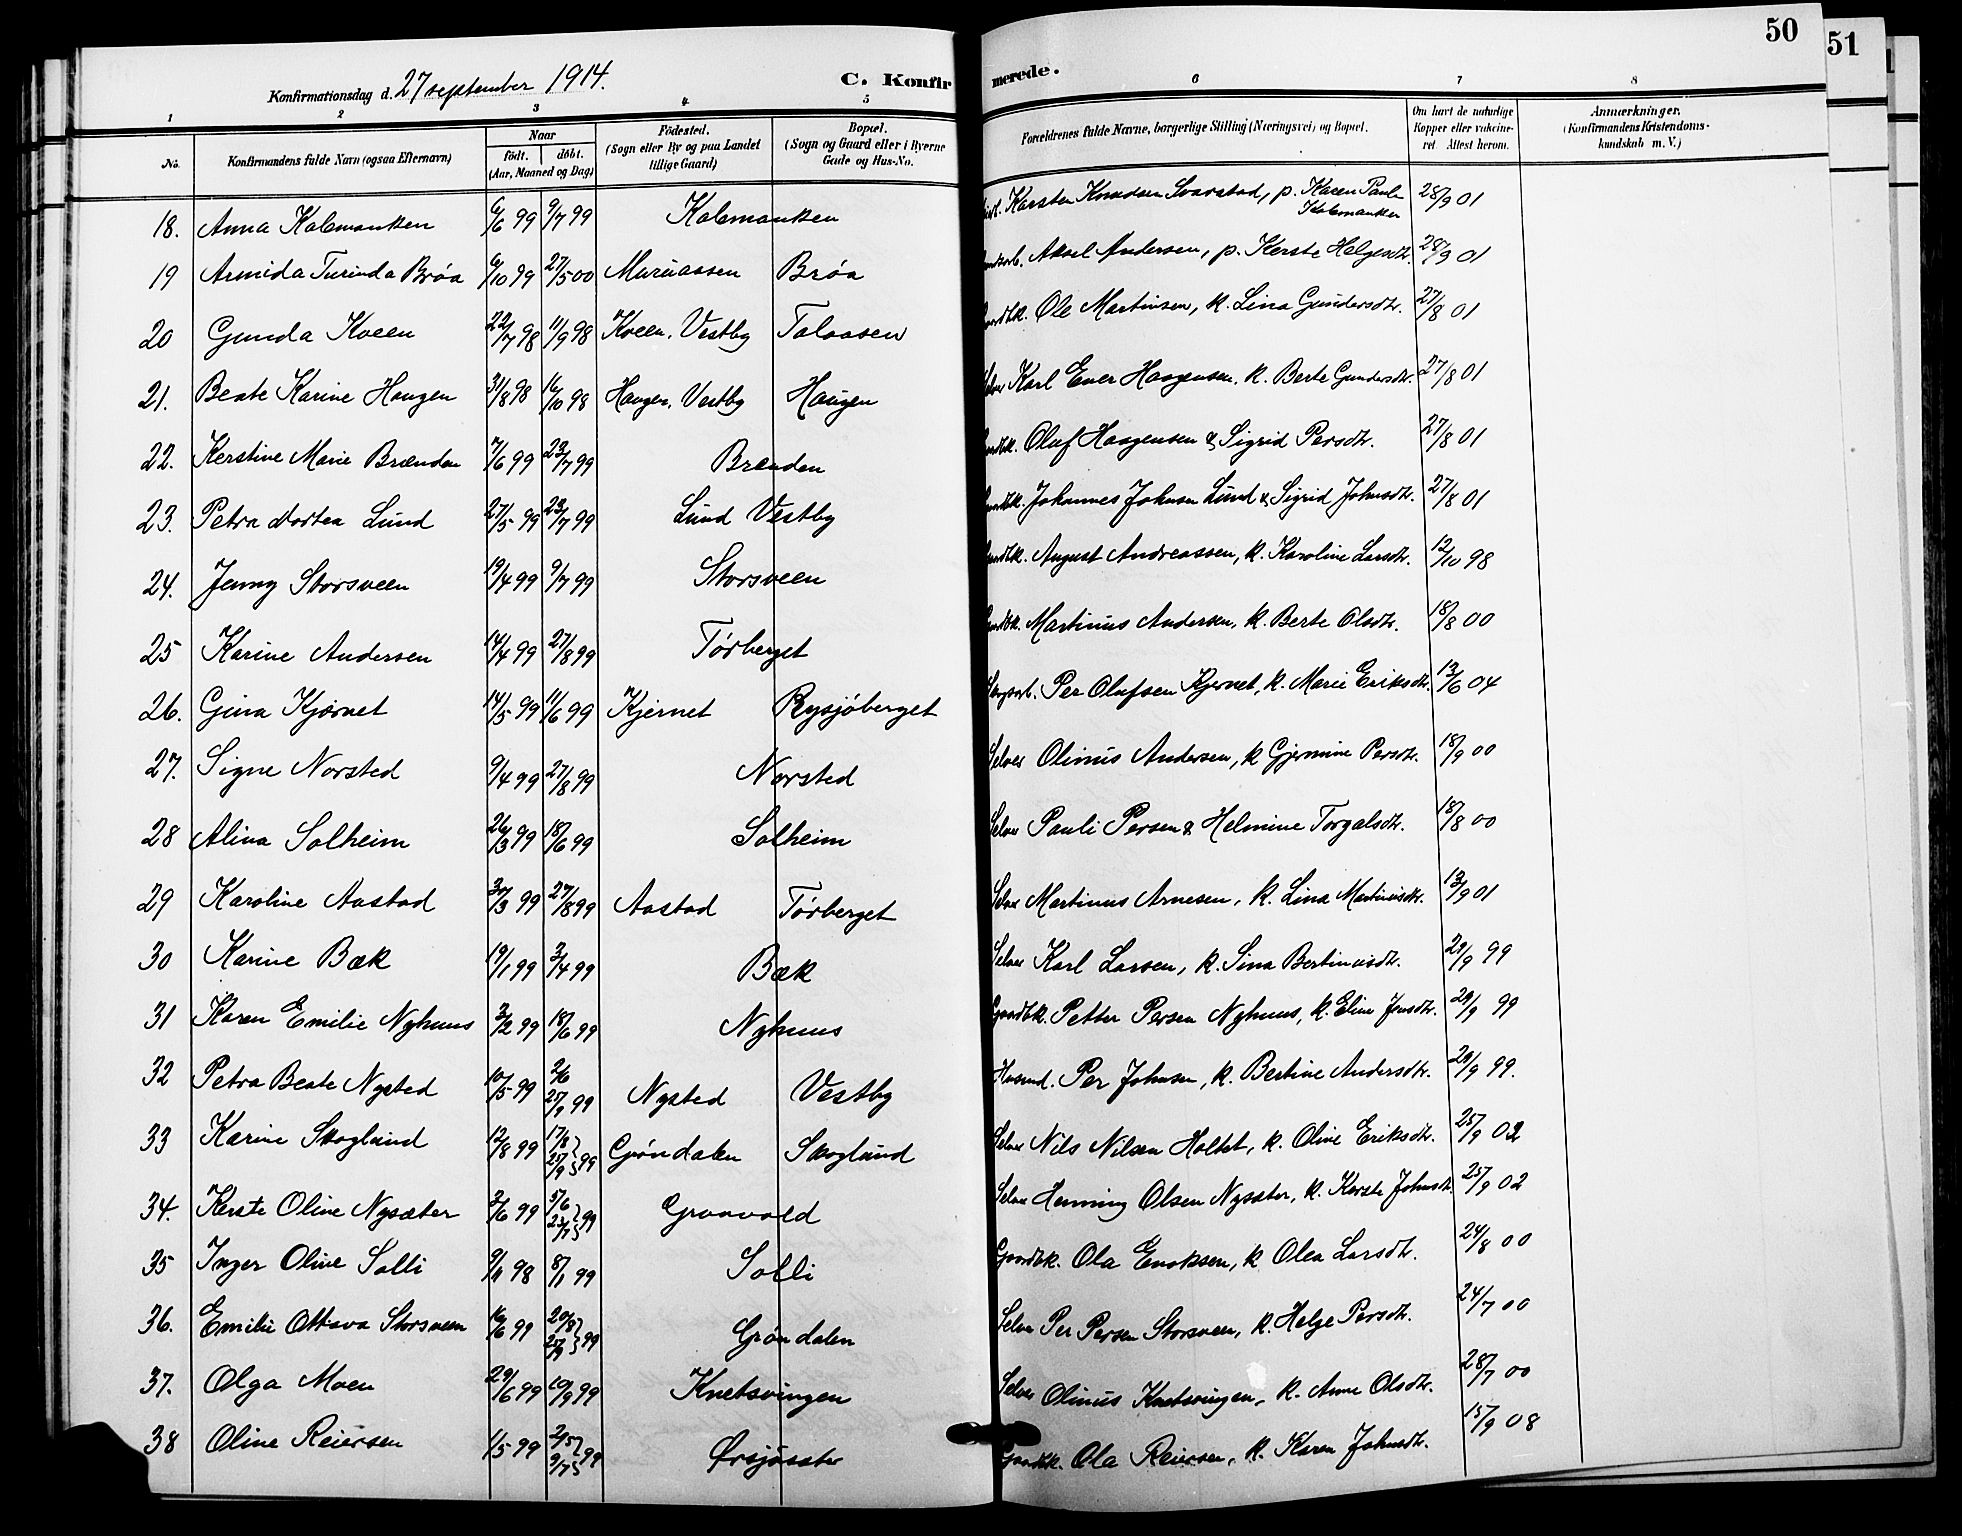 50
51
Konfirmationsdag d. 27 september 1914.
C. Konfirmerede.
1 2 3 4 5 6 7 8
No.
Konfirmandens fulde Navn (ogsaa Efternavn)
Naar
født. døbt.
(Aar, Maaned og Dag)
Fødested.
(Sogn eller By og paa Landet
tillige Gaard)
Bopæl.
(Sogn og Gaard eller i Byerne
Gade og Hus-No.
Forældrenes fulde Navne, borgerlige Stilling (Næringsvei) og Bopæl.
Om havt de naturlige
Kopper eller vakcine-
ret. Attest herom.
Anmærkninger.
(Konfirmandens Kristendoms-
kundskab m. V.)
18. Anna Kalemanken 6/6 99 9/7 99 Kalemanken Karsten Knudsen Svarstad, p. Karen Pauls Kalemanken 28/9 01
19 Armida Turinda Brøa 6/10 99 27/5 00 Muruaasen Brøa Aksel Andersen, p. Kerste Helgesdtr. 28/9 01
20 Gunda Kveen 22/7 98 11/9 98 Kveen, Vestby Talaasen Gaardbk. Ole Martinsen, k. Lina Gundersdtr. 27/8 01
21. Beate Karine Haugen 31/8 98 16/10 98 Haugen, Vestby Haugen Selve Karl Ener Haagensen, k. Berte Gundersdtr. 27/8 01
22. Kerstine Marie Brænden 7/6 99 23/7 99 Brænden Gaardbk. Oluf Haagensen & Sigrid Persdtr. 27/8 01
23. Petra Dortea Lund 27/5 99 23/7 99 Lund Vestby Gaardbk. Johannes Johnsen Lund & Sigrid Johnsdtr. 27/8 01
24. Jenny Storsveen 19/4 99 9/7 99 Storsveen Gaardbk. August Andreassen, k. Karoline Larsdtr. 12/10 98
25 Karine Andersen 14/4 99 27/8 99 Tørberget Gaardbk. Martinus Andersen, k. Berte Olsdtr. 18/8 00
26. Gina Kjærnet 14/5 99 11/6 99 Kjernet Rysjøberget Per Olafsen Kjernet, k. Marie Eriksdtr. 13/6 04
27. Signe Norsted 9/4 99 27/8 99 Norsted Selver Olinus Andersen, k Gjermine Persdtr. 18/9 00
28 Alina Solheim 26/3 99 18/6 99 Solheim Selver Pauli Persen & Helmine Torgalsdtr. 18/8 00
29 Karoline Aastad 30/3 99 27/8 99 Aastad Tørberget Selver Martinus Arnesen, k. Lina Martinusdtr. 13/9 01
30 Karine Bæk 19/1 99 3/4 99 Bæk Selver Karl Larsen, k. Sina Bertinusdtr. 29/9 99
31 Karen Emilie Nyhuus 3/2 99 18/6 99 Nyhuus Gaardbk. Petter Persen Nyhuus, k. Eline Jensdtr. 29/9 99
32 Petra Beate Nysted 10/5 99 2/6 25/9 99 Nysted Vestby Husmd. Per Johnsen, k. Bertine Andersdtr. 29/9 99.
33 Karine Skoglund 12/8 99 17/8 25/9 99 Grøndalen Skoglund Selver Nils Nilsen Holtet, k. Oline Eriksdtr. 25/9 02
34. Kerste Oline Nysæter 3/6 99 5/6 23/7 99 Graavold Selver Henning Olsen Nysæter, k. Kerste Johnsdtr. 25/9 02
35 Inger Oline Solli 9/11 98 8/1 99 Solli Gaardbk. Ola Enoksen, k Olea Larsdtr. 24/8 00
36. Emilie Ottava Storsveen 16/6 99 20/8 25/9 99 Grøndalen Selver Per Persen Storsveen, k. Helge Persdtr. 24/7 00
37. Olga Moen 29/6 99 10/9 99 Knetsvingen Selver Olinus Knetsvingen, k. Anne Olsdtr. 28/7 00
38 Oline Reiersen 1/5 99 2/5 9/7 99 Ørsjøsæter Gaardbk. Ola Reiersen, k. Karen Johnsdtr. 15/9 08